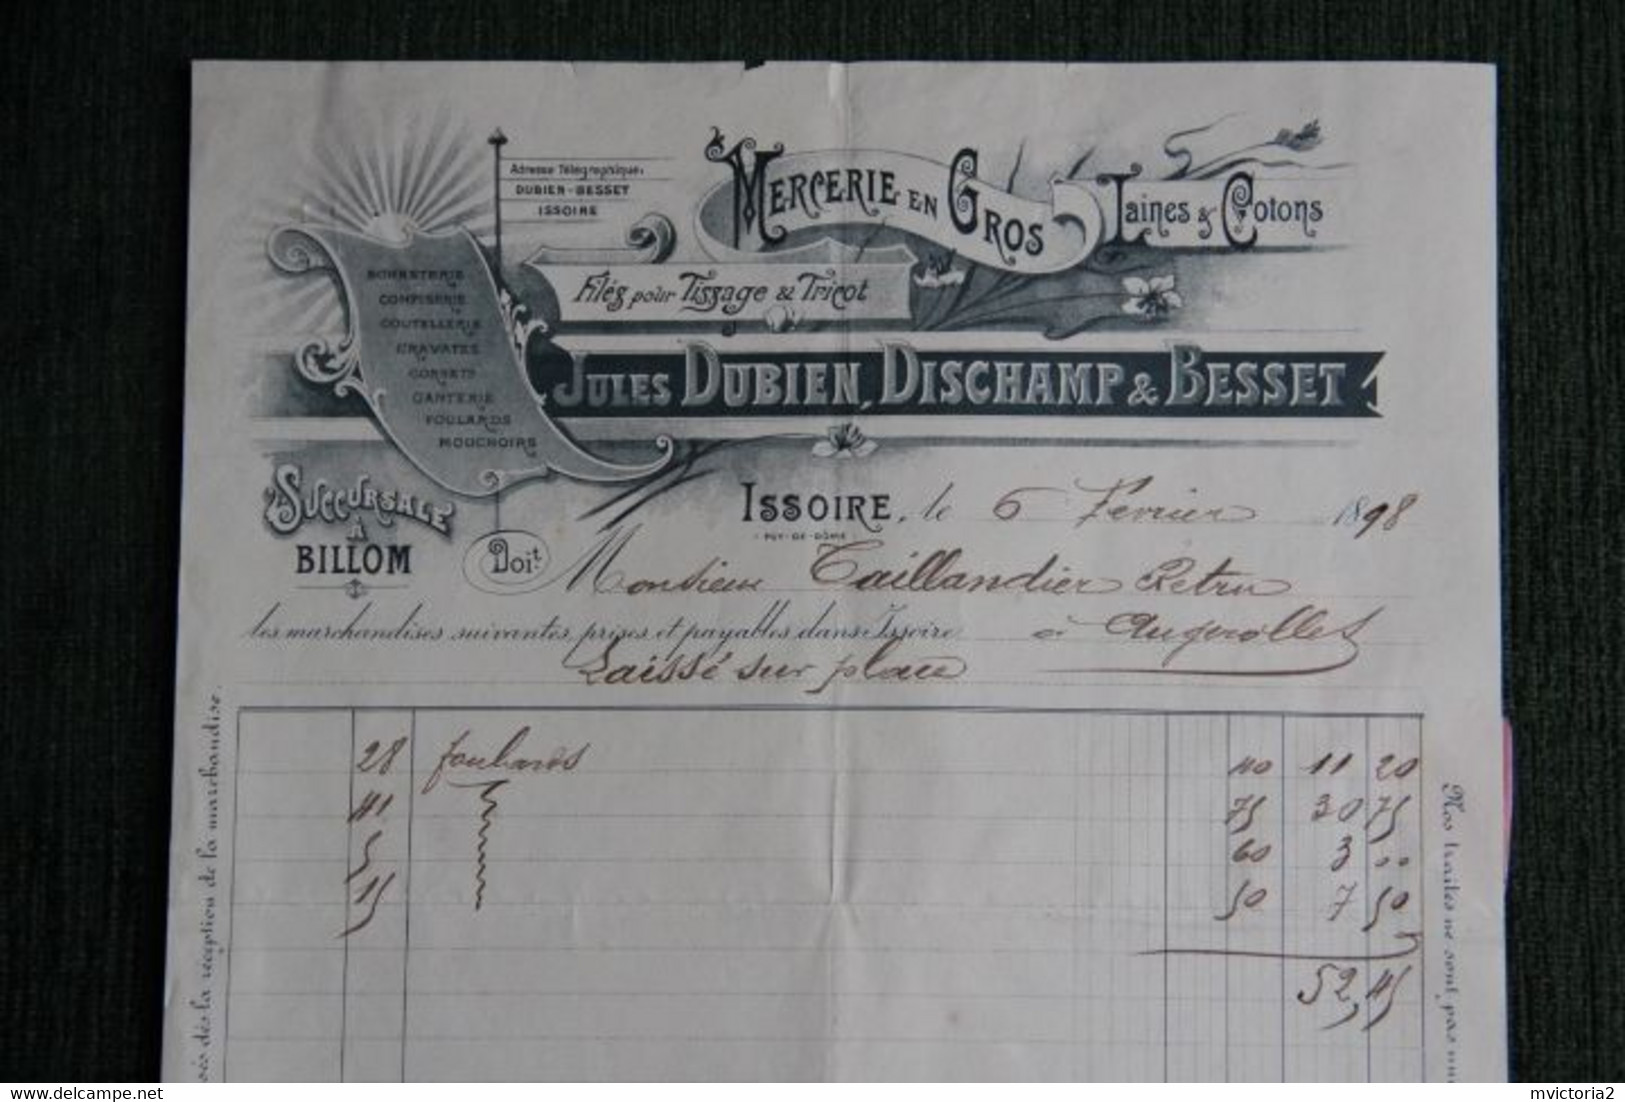 Adresse Télégraphique:
DUBIEN-BESSET
ISSOIRE
MERCERIE EN GROS
Laines & Cotons
Filés pour Tissage & Tricot
BONNETERIE
CONFISERIE
COUTELLERIE
CRAVATES
CORSETS
GANTERIE
FOULARDS
MOUCHOIRS
JULES DUBIEN, DISCHAMP & BESSET
SUCCURSALE
A
BILLOM
ISSOIRE, le 6 Fevrier 1898
PUY-DE-DÔME
Doit Monsieur Taillandier
les marchandises suivantes, prises et payables dans Issoire à Augerolles
Laissé sur place
28 foulards 40 11 20
41 75 30 75
5 60 3 00
15 50 7 50
52,45
dès la réception de la marchandise.
Nos traites ne sont pas
delcampe.net
mvictoria2